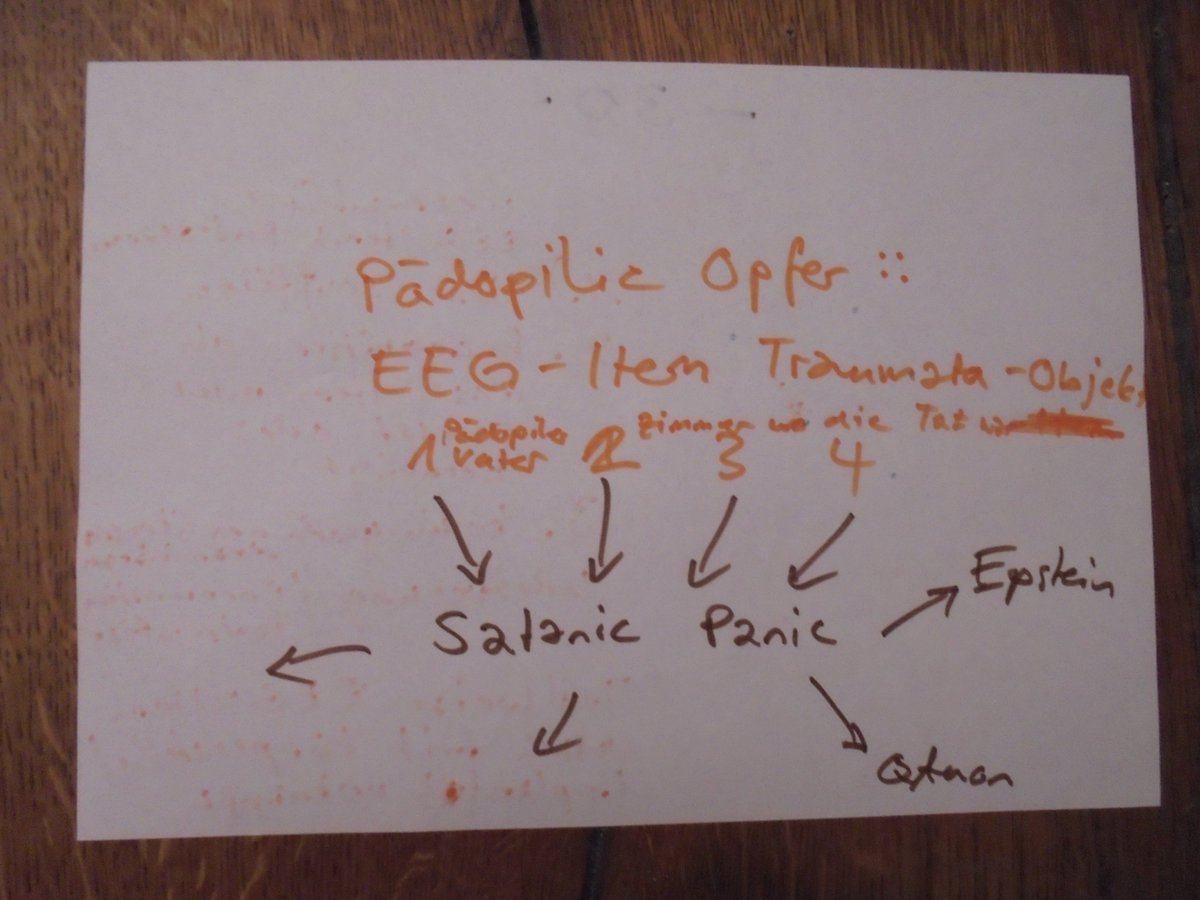 Pädopilie Opfer ::
EEG - Item Traumata - Objekt
Pädopiler Zimmer wo die Tat
1 Vater 2 3 4
Satanic Panic
Epstein
QAnon